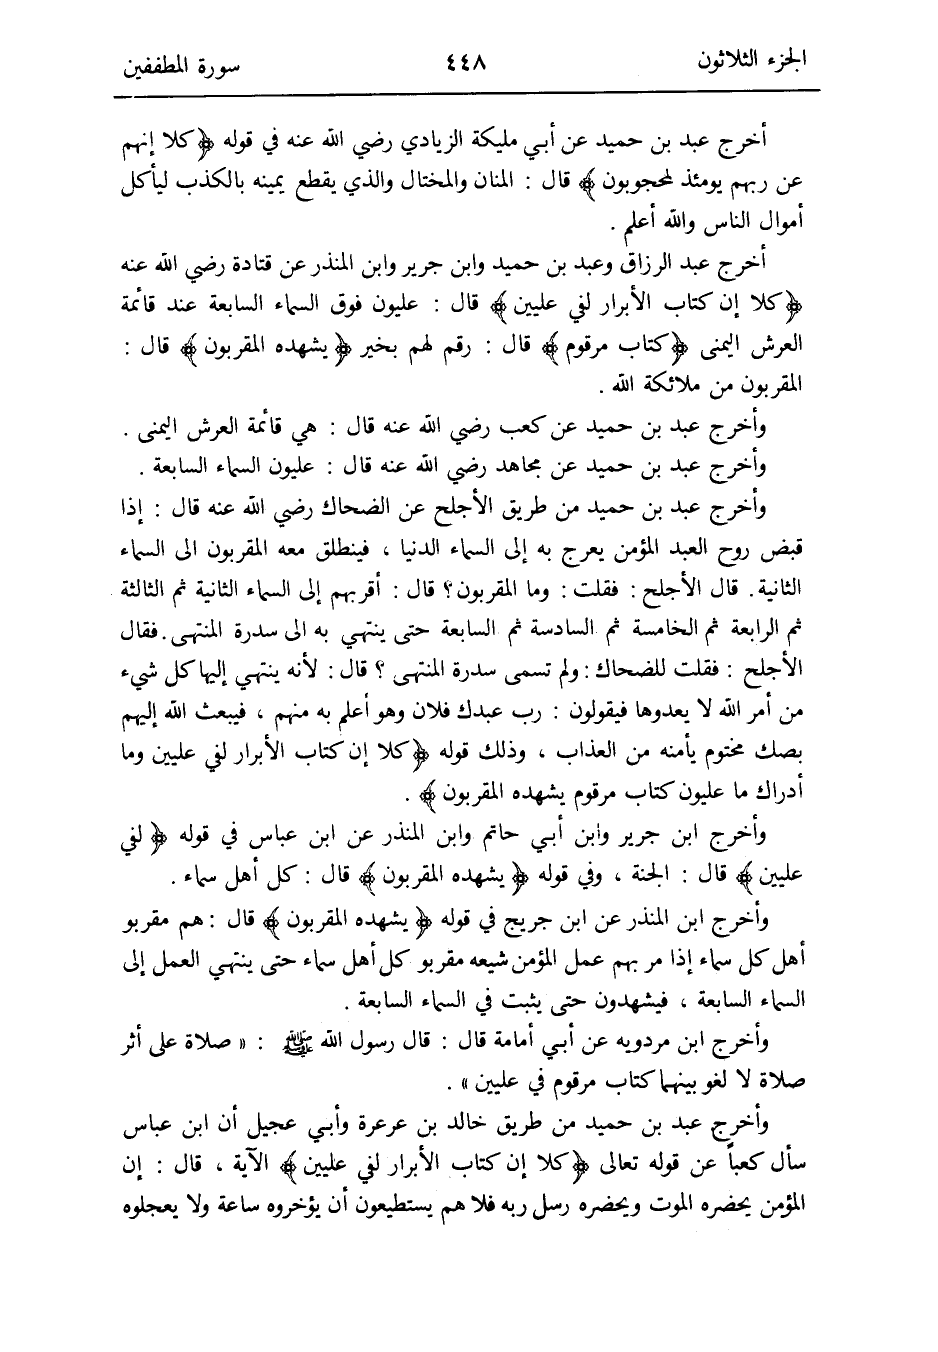 الجزء الثلاثون ٤٤٨ سورة المطففين
أخرج عبد بن حميد عن أبي مليكة الزيادي رضي الله عنه في قوله ﴿ كلا إنهم
عن ربهم يومئذ لمحجوبون ﴾ قال : المنان والمختال والذي يقطع يمينه بالكذب ليأكل
أموال الناس والله أعلم .
أخرج عبد الرزاق وعبد بن حميد وابن جرير وابن المنذر عن قتادة رضي الله عنه
﴿ كلا إن كتاب الأبرار لفي عليين ﴾ قال : عليون فوق السماء السابعة عند قائمة
العرش اليمنى ﴿ كتاب مرقوم ﴾ قال : رقم لهم بخير ﴿ يشهده المقربون ﴾ قال :
المقربون من ملائكة الله .
وأخرج عبد بن حميد عن كعب رضي الله عنه قال : هي قائمة العرش اليمنى .
وأخرج عبد بن حميد عن مجاهد رضي الله عنه قال : عليون السماء السابعة .
وأخرج عبد بن حميد من طريق الأجلح عن الضحاك رضي الله عنه قال : إذا
قبض روح العبد المؤمن يعرج به إلى السماء الدنيا ، فينطلق معه المقربون الى السماء
الثانية . قال الأجلح : فقلت : وما المقربون ؟ قال : أقربهم إلى السماء الثانية ثم الثالثة
ثم الرابعة ثم الخامسة ثم السادسة ثم السابعة حتى ينتهي به الى سدرة المنتهى . فقال
الأجلح : فقلت للضحاك : ولم تسمى سدرة المنتهى ؟ قال : لأنه ينتهي إليها كل شيء
من أمر الله لا يعدوها فيقولون : رب عبدك فلان وهو أعلم به منهم ، فيبعث الله إليهم
بصك مختوم يأمنه من العذاب ، وذلك قوله ﴿ كلا إن كتاب الأبرار لفي عليين وما
أدراك ما عليون كتاب مرقوم يشهده المقربون ﴾ .
وأخرج ابن جرير وابن أبي حاتم وابن المنذر عن ابن عباس في قوله ﴿ لفي
عليين ﴾ قال : الجنة ، وفي قوله ﴿ يشهده المقربون ﴾ قال : كل أهل سماء .
وأخرج ابن المنذر عن ابن جريج في قوله ﴿ يشهده المقربون ﴾ قال : هم مقربو
أهل كل سماء إذا مر بهم عمل المؤمن شيعه مقربو كل أهل سماء حتى ينتهي العمل إلى
السماء السابعة ، فيشهدون حتى يثبت في السماء السابعة .
وأخرج ابن مردويه عن أبي أمامة قال : قال رسول الله ﷺ : « صلاة على أثر
صلاة لا لغو بينهما كتاب مرقوم في عليين » .
وأخرج عبد بن حميد من طريق خالد بن عرعرة وأبي عجيل أن ابن عباس
سأل كعباً عن قوله تعالى ﴿ كلا إن كتاب الأبرار لفي عليين ﴾ الآية ، قال : إن
المؤمن يحضره الموت ويحضره رسل ربه فلا هم يستطيعون أن يؤخروه ساعة ولا يعجلوه